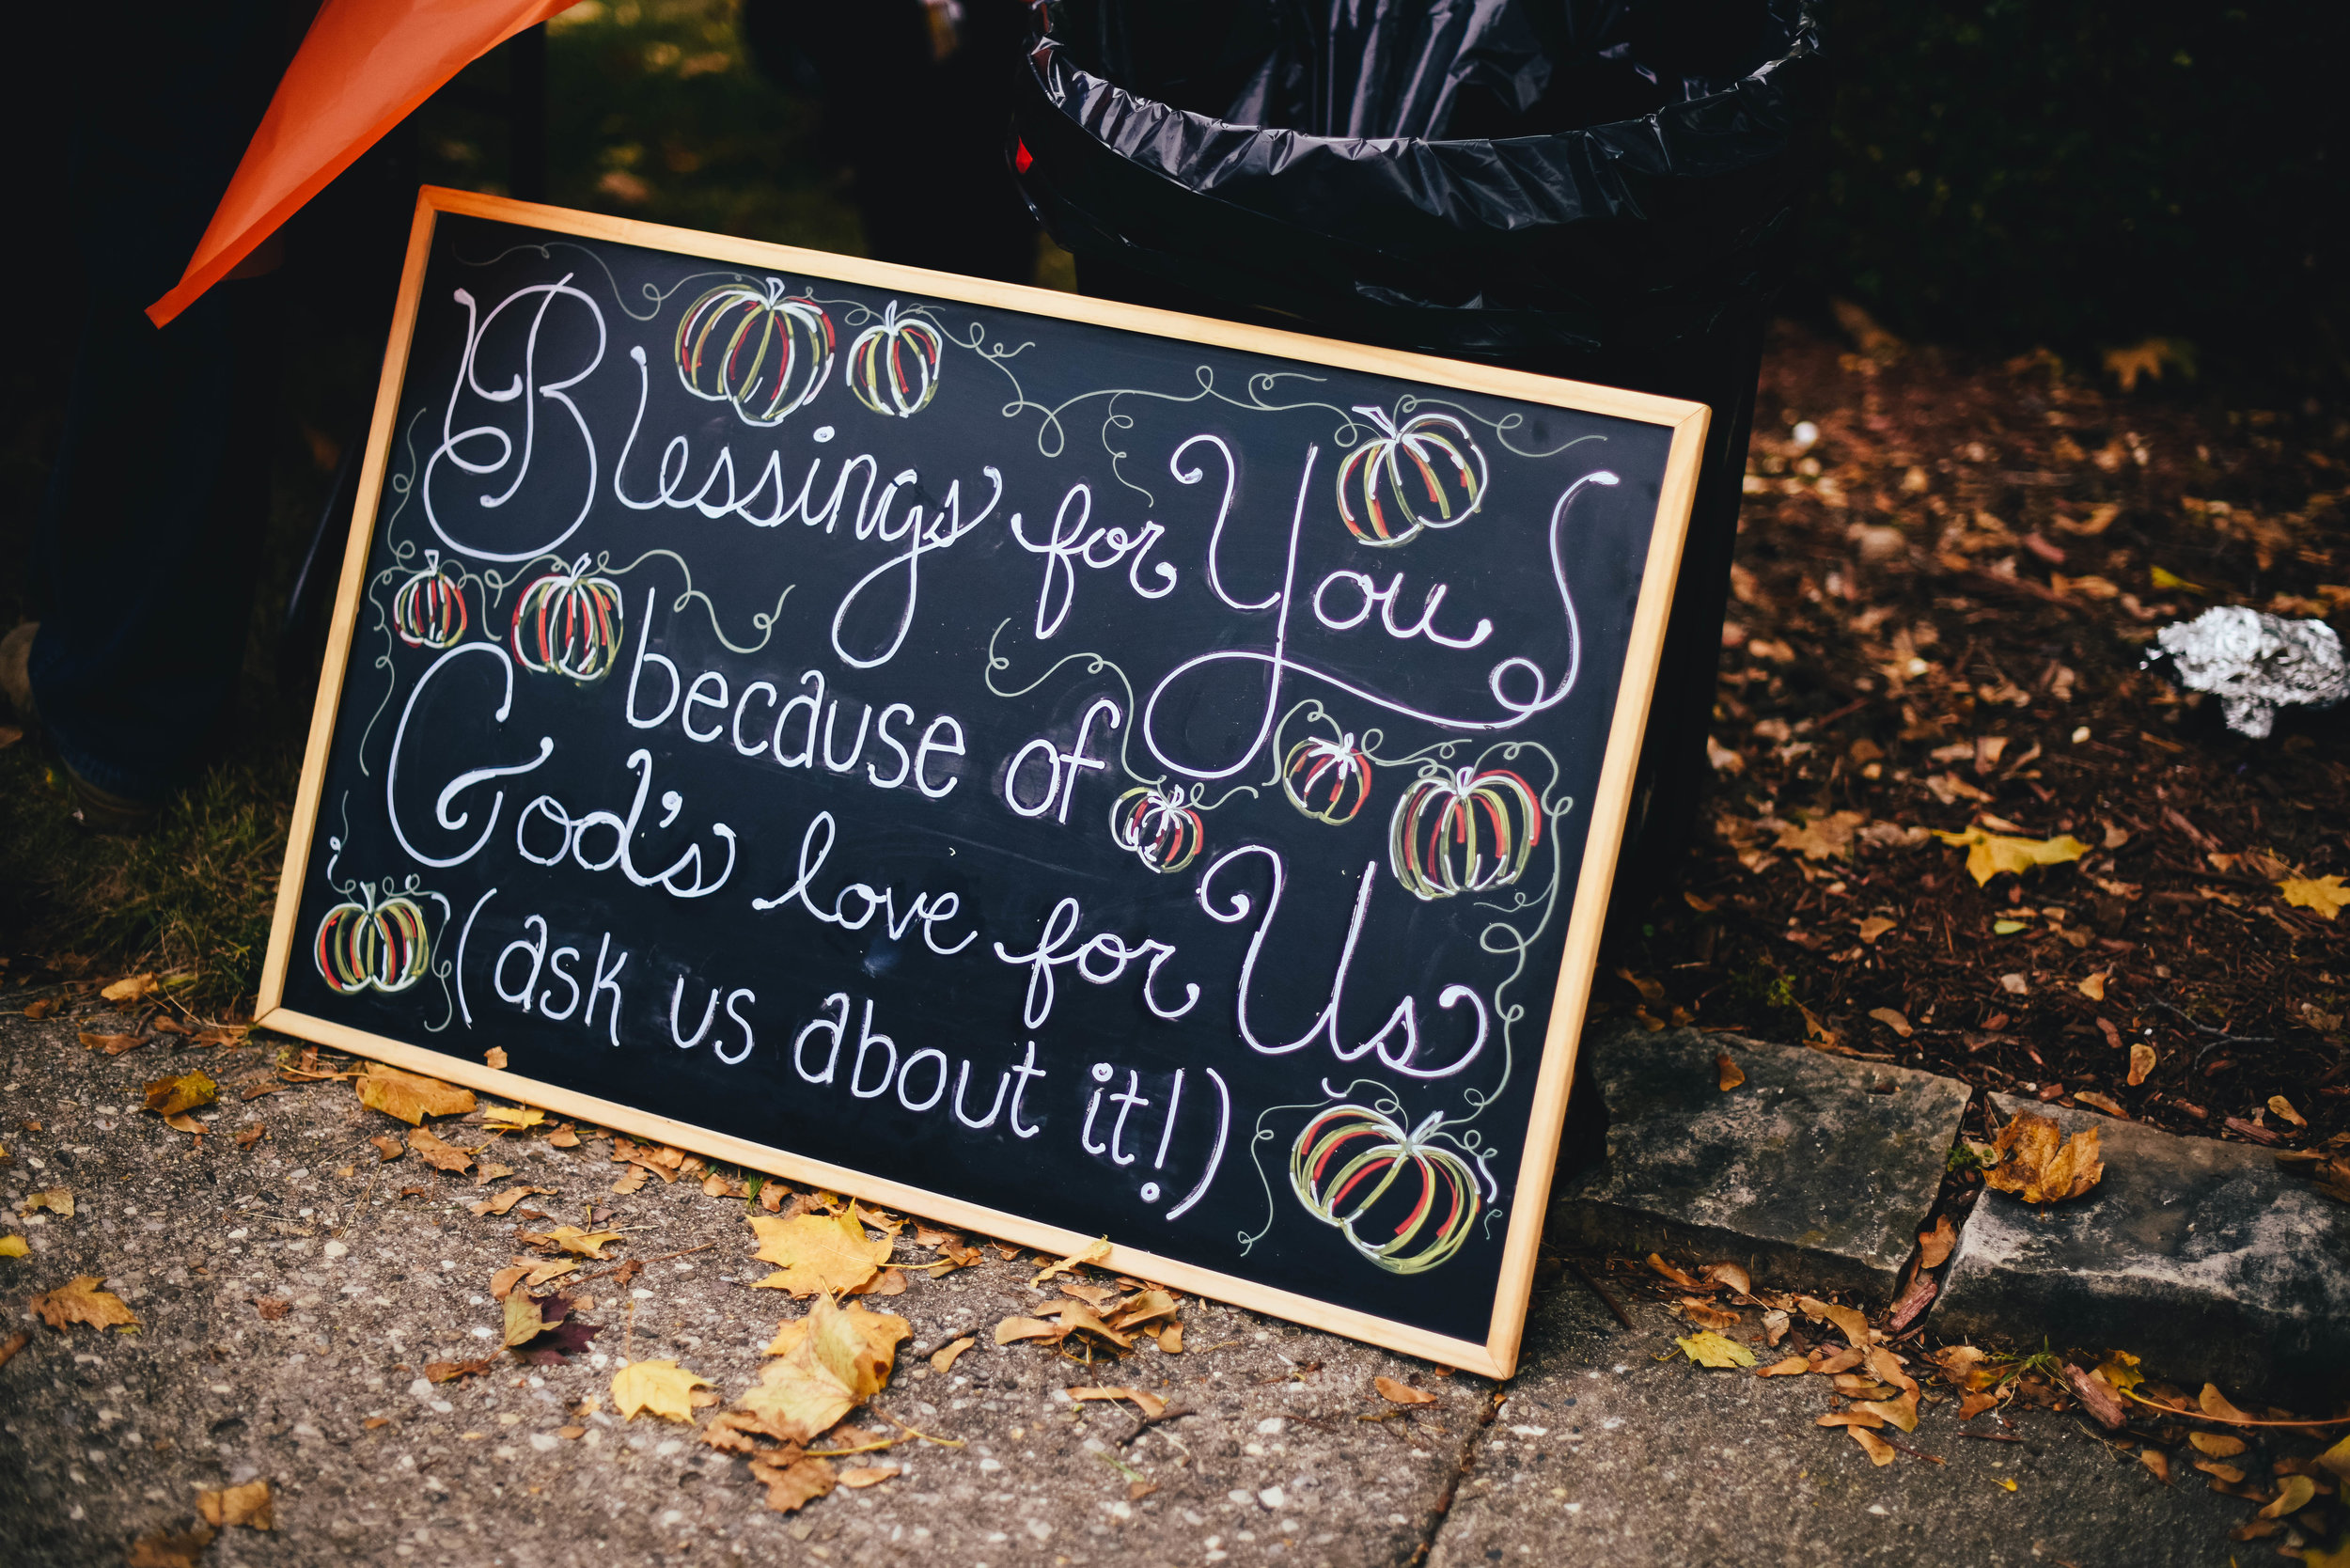 Blessings for You
because of
God's love for Us
(ask us about it!)